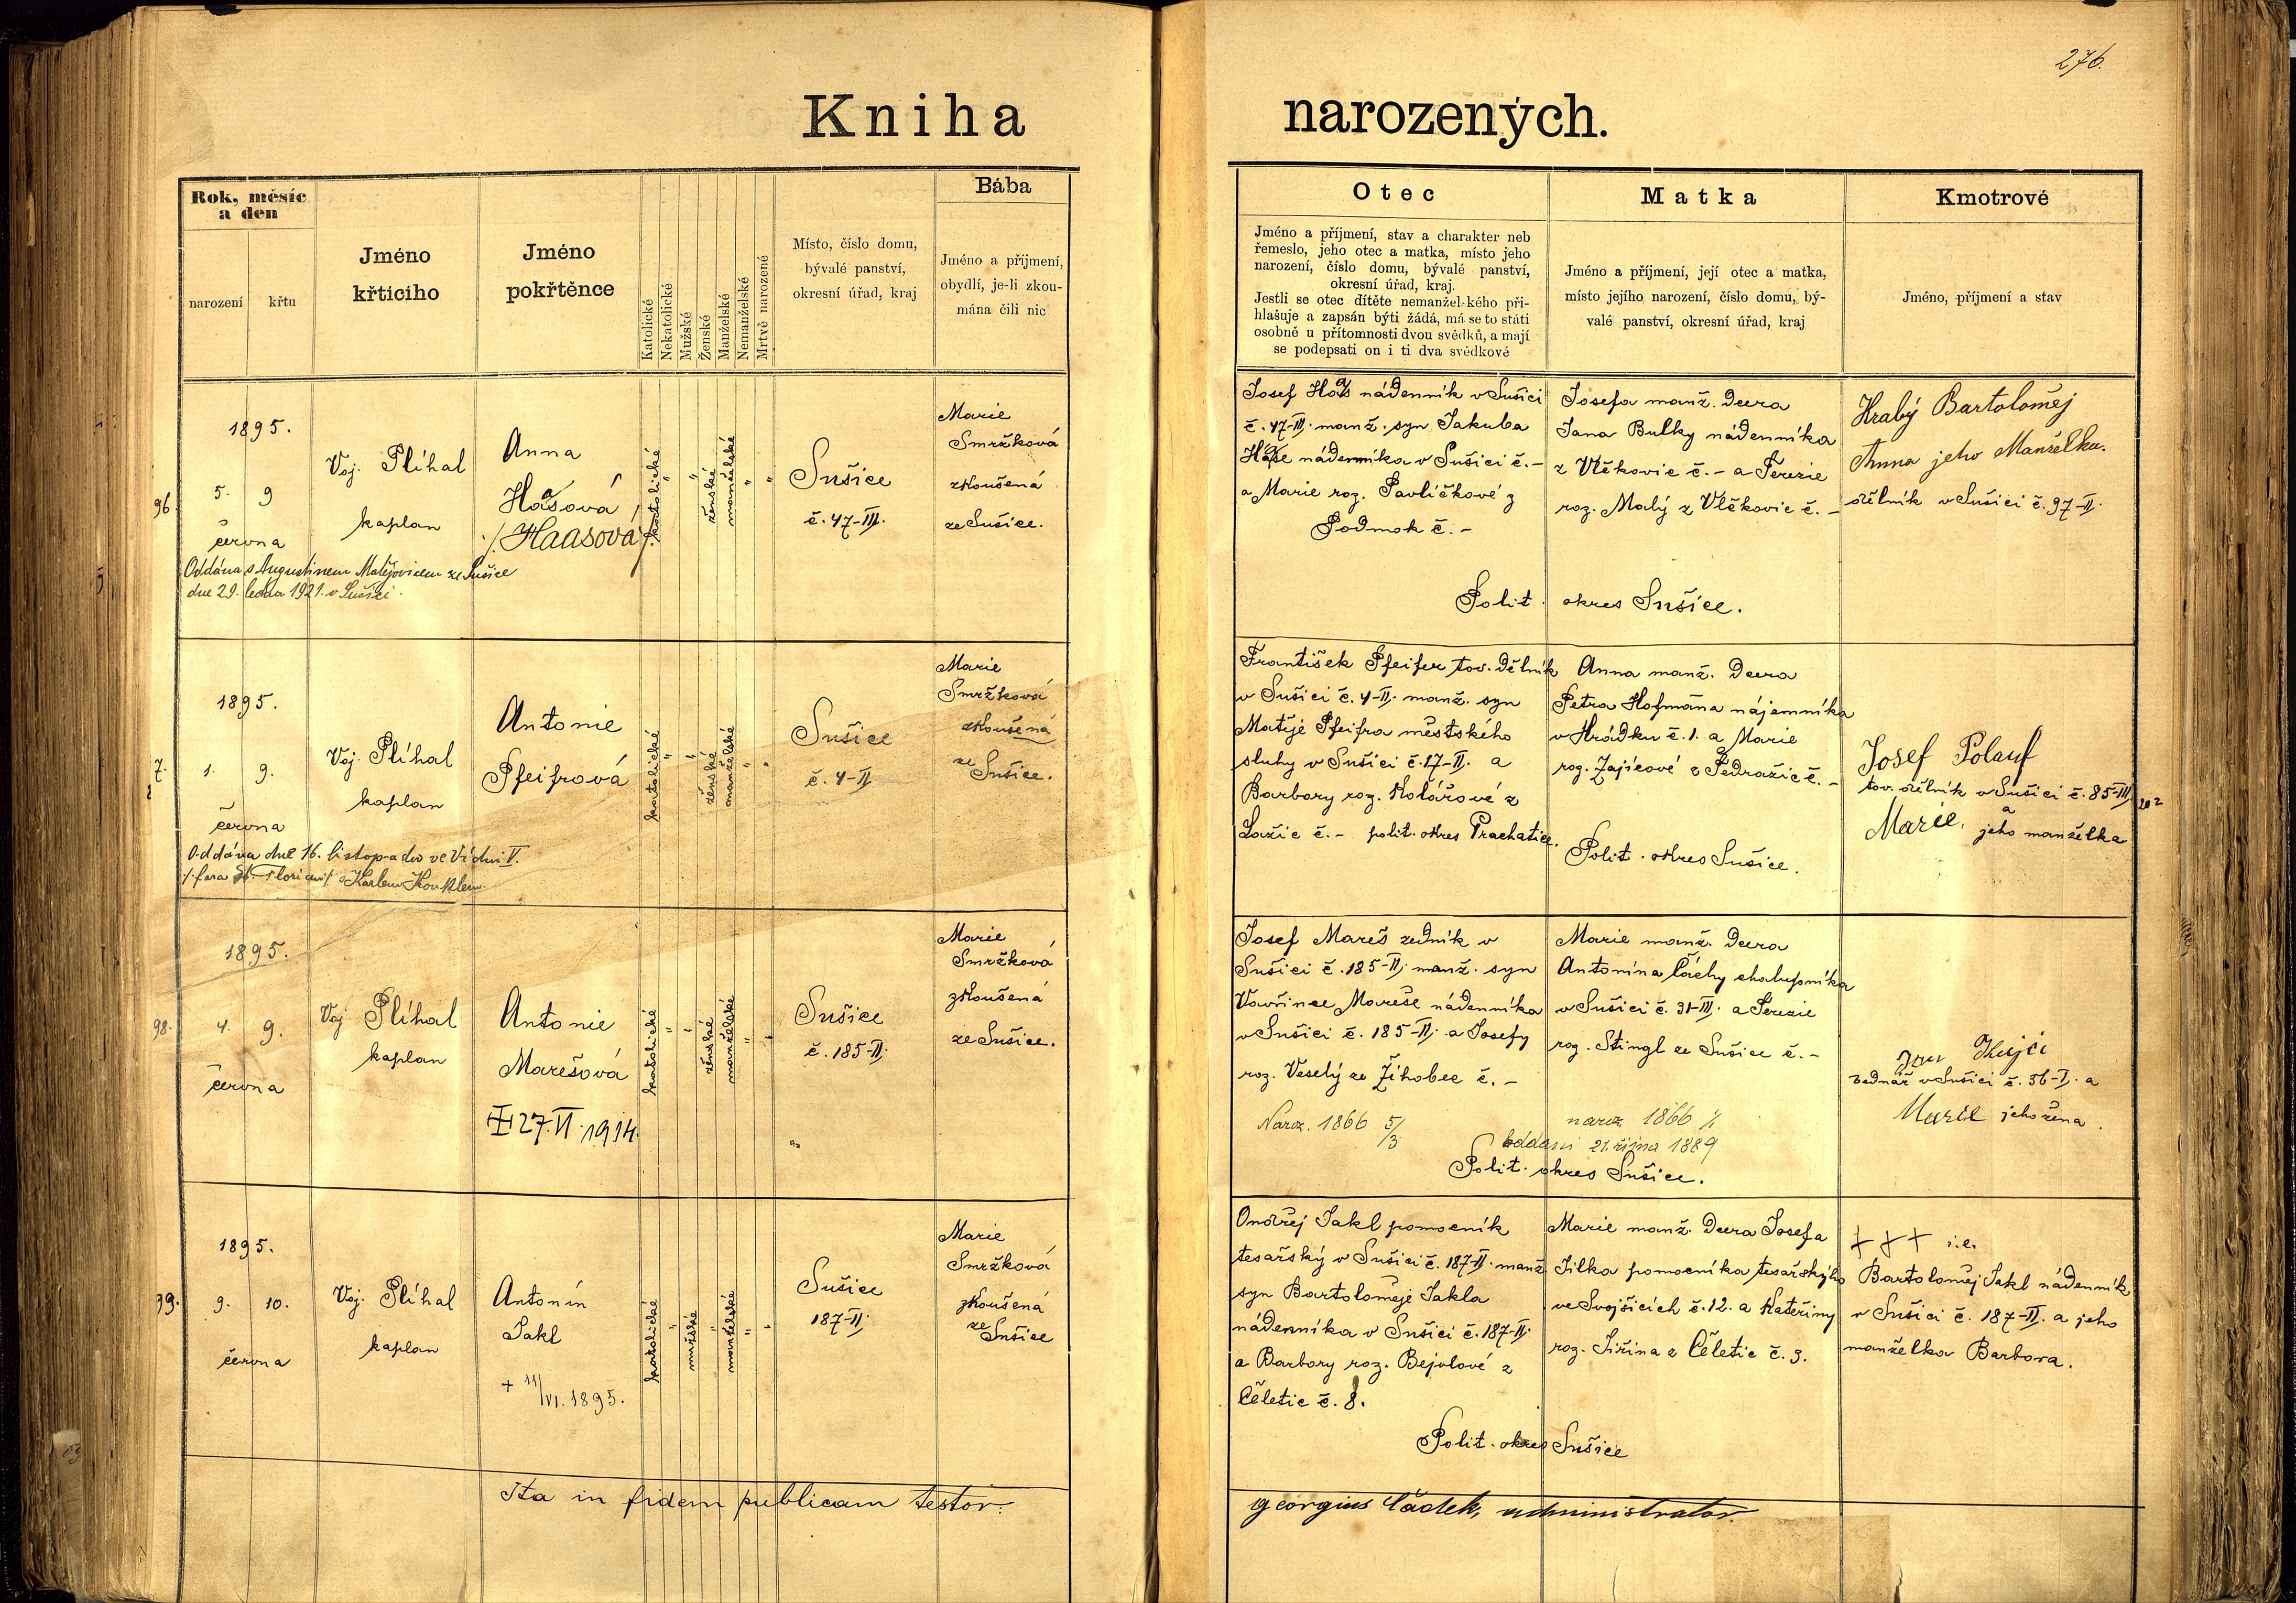 276.
Kniha narozených.
Rok, měsíc
a den
narození
křtu
Jméno
křticího
Jméno
pokřtěnce
Katolické
Nekatolické
Mužské
Ženské
Manželské
Nemanželské
Mrtvě narozené
Místo, číslo domu,
bývalé panství,
okresní úřad, kraj
Bába
Jméno a příjmení,
obydlí, je-li zkou-
mána čili nic
Otec
Jméno a příjmení, stav a charakter neb
řemeslo, jeho otec a matka, místo jeho
narození, číslo domu, bývalé panství,
okresní úřad, kraj.
Jestli se otec dítěte nemanželského při-
hlašuje a zapsán býti žádá, má se to státi
osobně u přítomnosti dvou svědků, a mají
se podepsati on i ti dva svědkové
Matka
Jméno a příjmení, její otec a matka,
místo jejího narození, číslo domu, bý-
valé panství, okresní úřad, kraj
Kmotrové
Jméno, příjmení a stav
96.
1895.
5. 9
června
Voj. Plíhal
kaplan
Anna
Haasová
/. Haasová /.
katolické
"
"
ženské
manželské
"
"
Sušice
č. 47-III.
Marie
Smržková
zkoušená
ze Sušice.
Oddána s Augustinem Matějovicem ze Sušice
dne 29. ledna 1921. v Sušici.
Josef Haas nádenník v Sušici
č. 47-III. manž. syn Jakuba
Haase nádenníka v Sušici č. -
a Marie roz. Pavlíčkové z
Podmok č. -
Josefa manž. dcera
Jana Bulky nádenníka
z Vlčkovic č. - a Terezie
roz. Malý z Vlčkovic č. -
Polit. okres Sušice.
Hrabý Bartoloměj
Anna jeho Manželka.
dělník v Sušici č. 97-II.
7.
1895.
1. 9.
června
Voj. Plíhal
kaplan
Antonie
Pfeifrová
katolické
"
"
ženské
manželské
"
"
Sušice
č. 4-II
Marie
Smržková
zkoušená
ze Sušice.
Oddána dne 16. listopadu ve Vídni V.
/. fara St. Florian / s Karlem
František Pfeifer tov. dělník
v Sušici č. 4-II. manž. syn
Matěje Pfeifra městského
sluhy v Sušici č. 17-II. a
Barbory roz. Kolářové z
Lažic č. - polit. okres Prachatice.
Anna manž. dcera
Petra Hofmana nájemníka
v Hrádku č. 1. a Marie
roz. Zajícové z Pedražic č. -
Polit. okres Sušice.
Josef Polauf
tov. dělník v Sušici č. 85-III
a
Marie, jeho manželka
98.
1895.
4. 9.
června
Voj. Plíhal
kaplan
Antonie
Marešová
27. VI. 1914.
katolické
"
"
ženské
manželské
"
"
Sušice
č. 185-II.
Marie
Smržková
zkoušená
ze Sušice.
Josef Mareš zedník v
Sušici č. 185-II. manž. syn
Vavřince Mareše nádenníka
v Sušici č. 185-II. a Josefy
roz. Veselý ze Žihobec č. -
Naroz. 1866 5/3
Marie manž. dcera
Antonína Čáchy chalupníka
v Sušici č. 31-III. a Terezie
roz. Stingl ze Sušice č. -
naroz. 1866
oddani 21. října 1889
Polit. okres Sušice.
Jan Krejčí
bednář v Sušici č. 36-I. a
Marie jeho žena.
99.
1895.
9. 10.
června
Voj. Plíhal
kaplan
Antonín
Jakl
+ 11/VI. 1895.
katolické
"
mužské
"
manželské
"
"
Sušice
187-II.
Marie
Smržková
zkoušená
ze Sušice
Ondřej Jakl pomocník
tesařský v Sušici č. 187-II. manž.
syn Bartoloměje Jakla
nádenníka v Sušici č. 187-II.
a Barbory roz. Bejvlové z
Čeletic č. 8.
Marie manž. dcera Josefa
Jílka pomocníka tesařskýho
ve Svojšicích č. 12. a Kateřiny
roz. Jiřina z Čeletic č. 3.
Polit. okres Sušice
+ + + i. e.
Bartoloměj Jakl nádenník
v Sušici č. 187-II. a jeho
manželka Barbora.
Ita in fidem publicam testor:
Georgius Čádek, administrator.